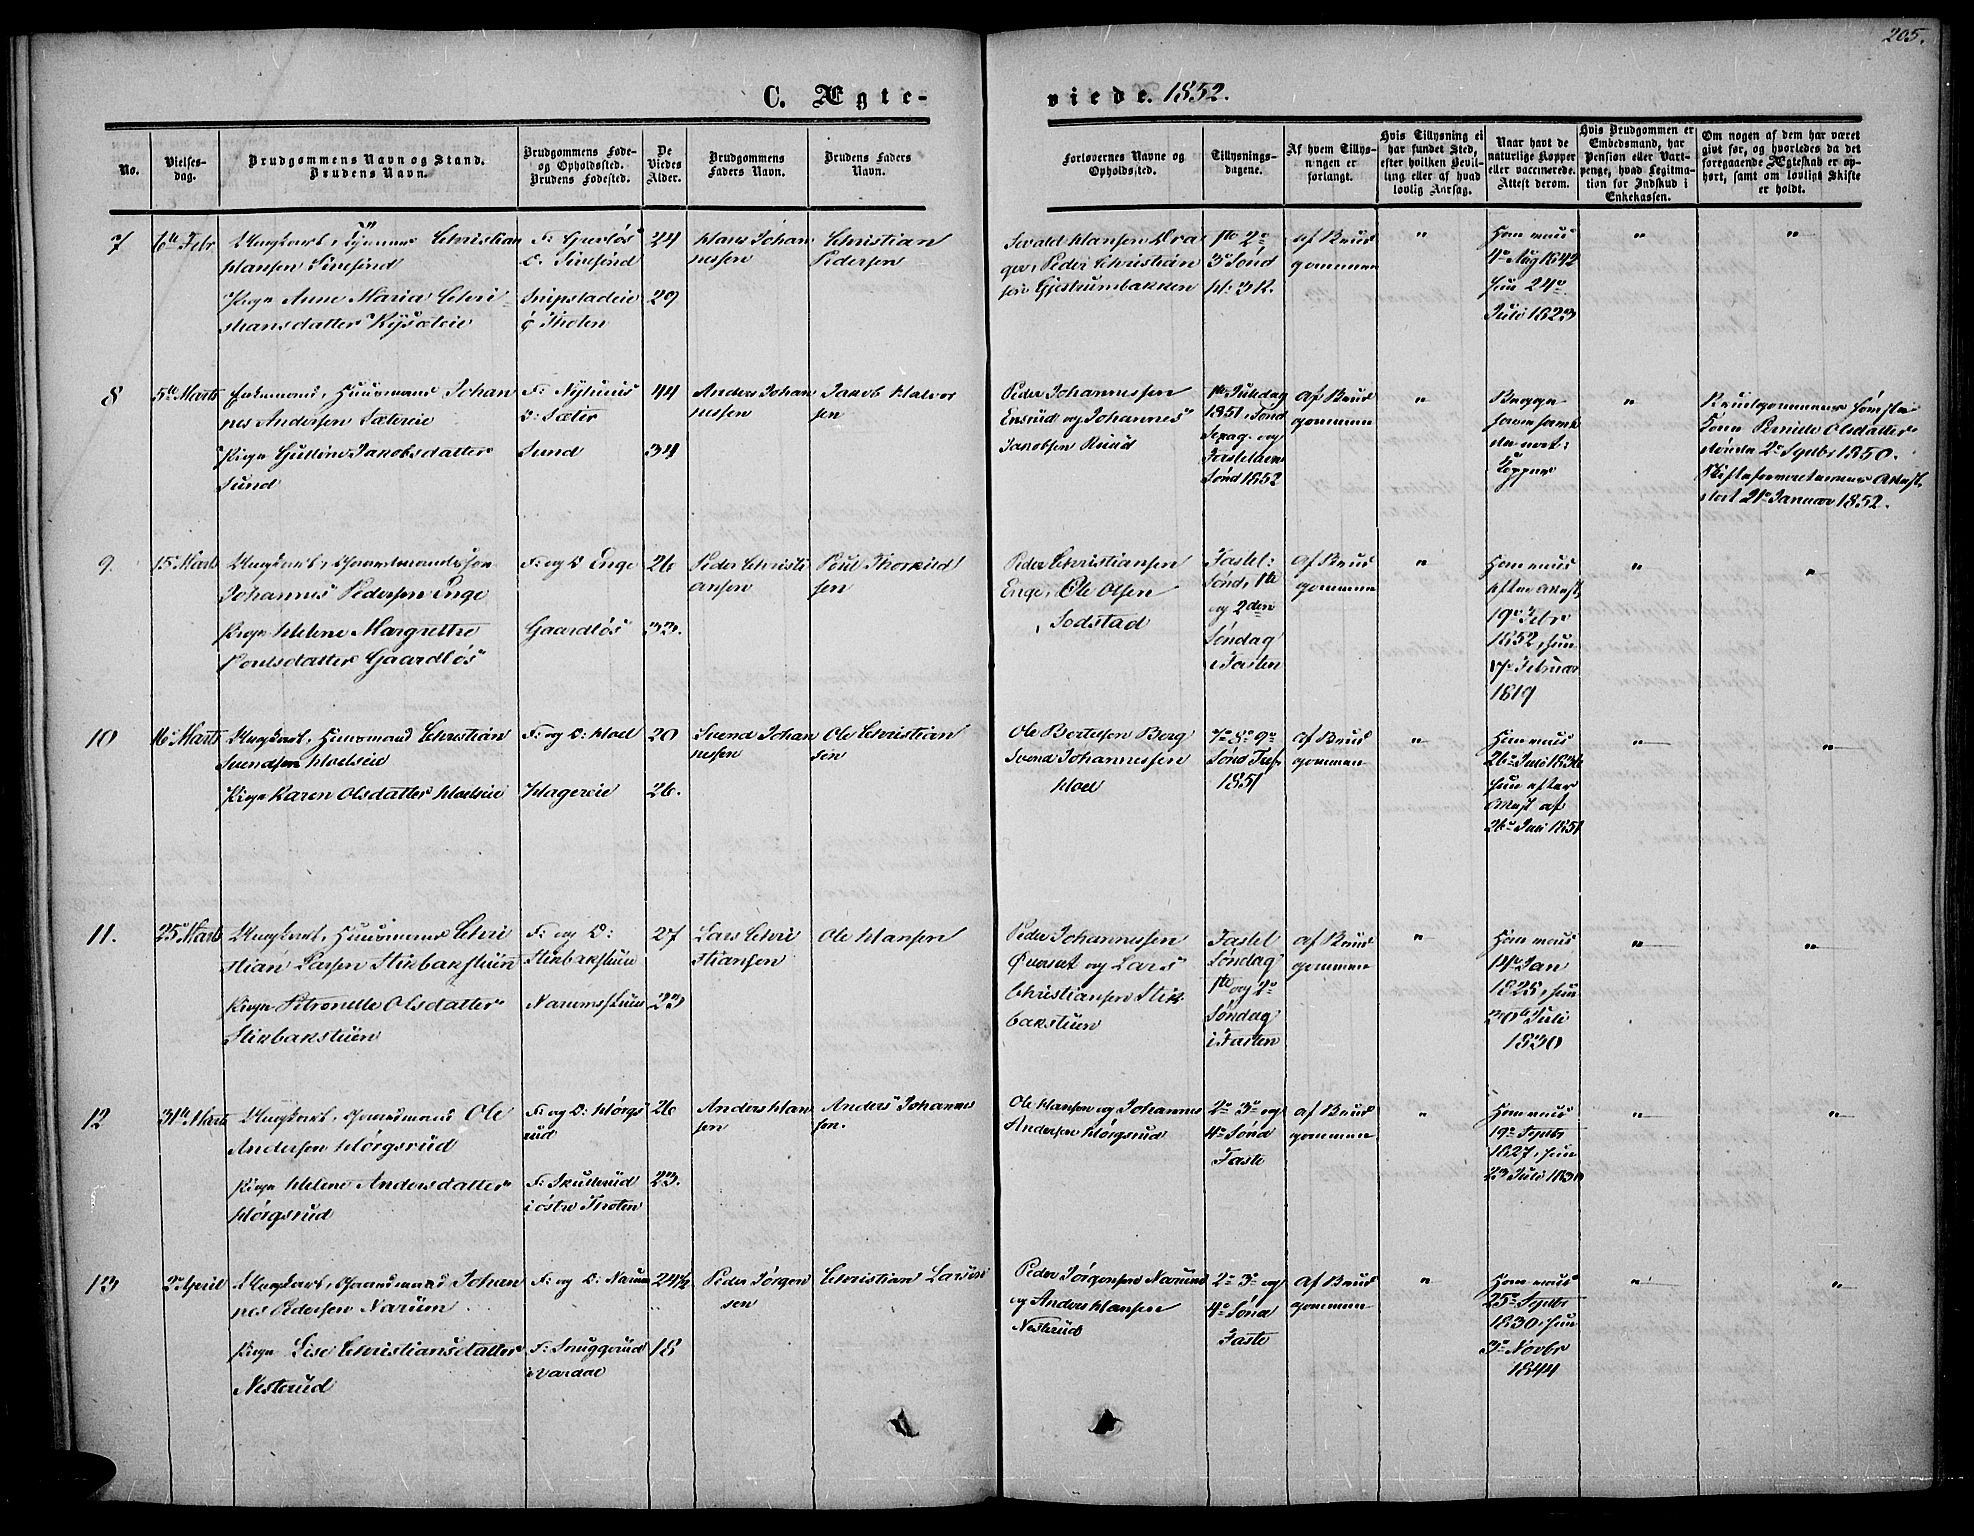 205.
C. Ægte-
viede. 1852.
No.
Vielses-
dag.
Brudgommens Navn og Stand.
Brudens Navn.
Brudgommens Føde-
og Opholdssted.
Brudens Fødested.
De
Viedes
Alder.
Brudgommens
Faders Navn.
Brudens Faders
Navn.
Forlovernes Navne og
Opholdssted.
Tillysnings-
dagene.
Af hvem Tillys-
ningen er
forlangt.
Hvis Tillysning ei
har fundet Sted,
efter hvilken Bevil-
ling eller af hvad
lovlig Aarsag.
Naar havt de
naturlige Kopper
eller vaccinerede.
Attest derom.
Hvis Brudgommen er
Embedsmand, har
Pension eller Vart-
penge, hvad Legitima-
tion for Indskud i
Enkekassen.
Om nogen af dem har været
givt før, og hvorledes da det
foregaaende Ægteskab er op-
hørt, samt om lovligt Skifte
er holdt.
7
6te Febr
Ungkarl, Tjener Christian
Hansen Sivesind
Pige Anne Maria Chri-
stiansdatter
24
29
Hans Johan
nessen
Christian
Pedersen
Peder Christian
sen Gjestrumbakken
1te 2den
3de Sønd
af Brud
gommen
"
24de
Juli 1823
"
"
8
5te Marts
Enkemand, Huusmand Johan
nes Andersen Sætereie
Pige Jakobsdatter
Sund
Sund
44
34
Anders Johan
nessen
Jakob Halvor
sen
Peder Johannessen
Ensrud og Johannes
Jakobsen
1te Juledag
1851, Sønd
Sexag. og
Fastelavns
Sønd 1852
af Brud
gommen
"
Begge
Kopper
"
Brudgommens første
Kone Pernille Olsdatter
døde 2de Septbr 1850.
Skifteforvalterens Attest
21de Januar 1852.
9.
15de Marts
Ungkarl, Gaardmandssøn
Johannes Pedersen Enge
Pige Helene Margrethe
Poulsdatter Gaardløs
F: og O Enge
Gaardløs
26
33.
Peder Christi
ansen
Poul Thorkild
sen
Peder Christiansen
Enge, Ole Olsen
Sodstad
Fastel:
Sønd, 1te
og 2den
Søndag
i Fasten
af Brud
gommen
"
efter Attest
19de Febr
1852, hun
17de Februar
1819
"
"
10
16de Marts
Ungkarl, Huusmand Christian
Svendsen Hoelseie
Pige Karen Olsdatter Hoelseie
F: og O: Hoel
Hagereie
20
26.
Svend Johan
nessen
Ole Christian
sen
Ole Bertelsen Berg
Svend Johannessen
Hoel
7de 8de 9de
Sønd Tref
1851
af Brud
gommen
"
26de Juli 1836
hun efter
Attest af
26de Juli 1851
"
"
11.
25de Marts
Ungkarl, Huusmand Chri
stian Larsen Stikbakstuen
Pige Petronelle Olsdatter
Stikbakstuen
F: og O:
Stikbakstuen
27
23
Lars Chri
stiansen
Ole Hansen
Peder Johannessen
og Lars
Christiansen Stik
bakstuen
Fastel
Søndag
1te og 2de
Søndag
i Fasten
af Brud
gommen
"
14de Jan
1825, hun
30te Juli
1830
"
"
12
31te Marts
Ungkarl, Gaardmand Ole
Andersen Hørgsrud
Pige Helene Andersdatter
Hørgsrud
F: og O: Hørgs
rud
F: Skuterud
i østre Thoten
26
23.
Anders Han
sen
Anders Johannes
sen.
Ole Hansen og Johannes
Andersen Hørgsrud
2de 3de og
4de Sønd
Faste
af Brud
gommen
"
19de Septbr
1827, hun
23 Juli 1830
"
"
13
2de April
Ungkarl, Gaardmand Johan
nes Pedersen Narum
Pige Lise Christiansdatter
Nesterud
F: og O: Narum
F: Snuggerud
i Vardal
24½
18
Peder Jørgen
sen
Christian Larsen
Peder Jørgensen Narum
og Anders Hansen
Nesterud
2de 3de og
4de Sønd
Faste
af Brud
gommen
"
25de Septbr
1830, hun
3de Novbr
1844
"
"